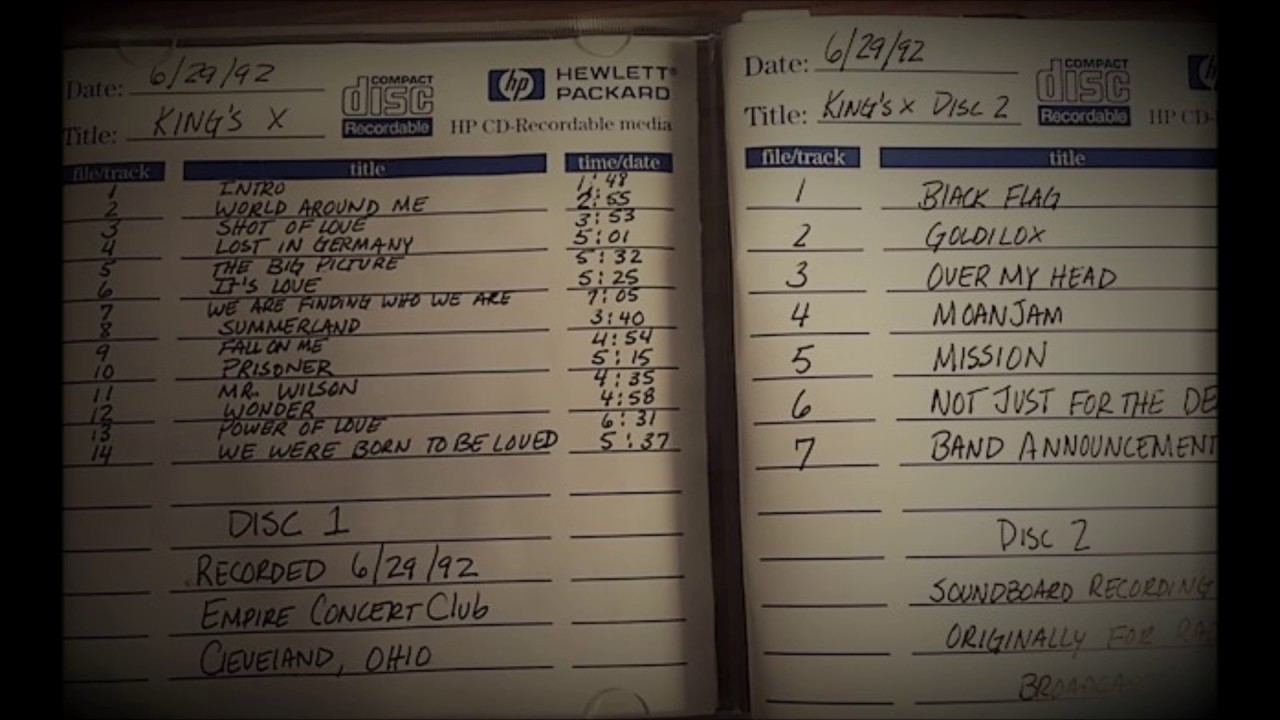 Date: 6/29/92
COMPACT disc Recordable
hp HEWLETT® PACKARD
Title: KING'S X
HP CD-Recordable media
file/track title time/date
1 INTRO 1:48
2 WORLD AROUND ME 2:55
3 SHOT OF LOVE 3:53
4 LOST IN GERMANY 5:01
5 THE BIG PICTURE 5:32
6 IT'S LOVE 5:25
7 WE ARE FINDING WHO WE ARE 7:05
8 SUMMERLAND 3:40
9 FALL ON ME 4:54
10 PRISONER 5:15
11 MR. WILSON 4:35
12 WONDER 4:58
13 POWER OF LOVE 6:31
14 WE WERE BORN TO BE LOVED 5:37
DISC 1
RECORDED 6/29/92
EMPIRE CONCERT CLUB
CLEVELAND, OHIO
Date: 6/29/92
COMPACT disc Recordable
Title: KING'S X DISC 2
HP CD-
file/track title
1 BLACK FLAG
2 GOLDILOX
3 OVER MY HEAD
4 MOANJAM
5 MISSION
6 NOT JUST FOR THE DE
7 BAND ANNOUNCEMENT
DISC 2
SOUNDBOARD RECORDING
ORIGINALLY FOR RA
BROADCA